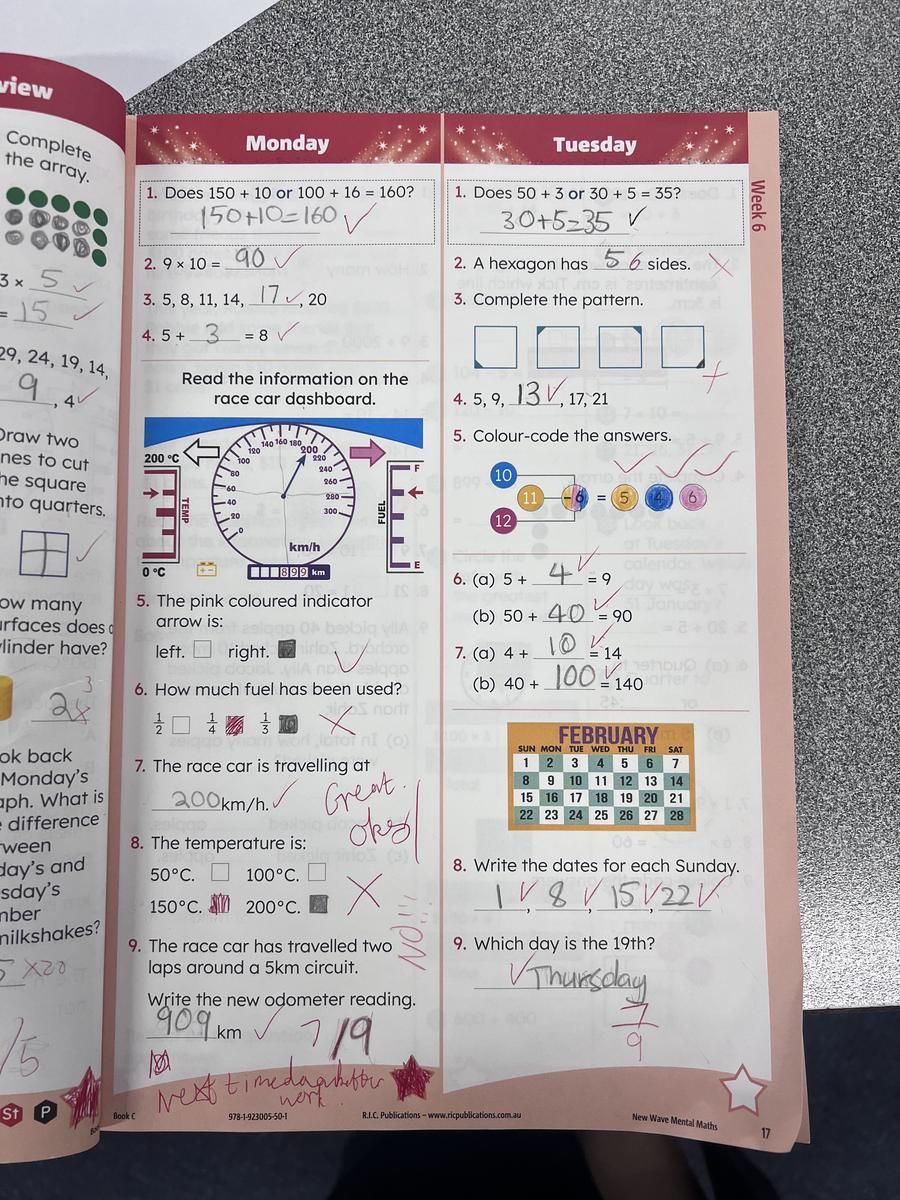 view
Complete
the array.
3 × 5
= 15
29, 24, 19, 14,
9, 4
Draw two
nes to cut
he square
nto quarters.
ow many
urfaces does
linder have?
3
2
ook back
Monday's
aph. What is
difference
ween
day's and
sday's
mber
milkshakes?
×20
/5
St P
Monday
1. Does 150 + 10 or 100 + 16 = 160?
150+10=160
2. 9 × 10 = 90
3. 5, 8, 11, 14, 17, 20
4. 5 + 3 = 8
Read the information on the
race car dashboard.
200 °C
TEMP
0 °C
0 20 40 60 80 100 120 140 160 180 200 220 240 260 280 300
km/h
899 km
FUEL
F
E
5. The pink coloured indicator
arrow is:
left. right.
6. How much fuel has been used?
1/2 1/4 1/3
7. The race car is travelling at
200 km/h.
Great
8. The temperature is:
50°C. 100°C.
150°C. 200°C.
NO!!!
9. The race car has travelled two
laps around a 5km circuit.
Write the new odometer reading.
909 km
7/9
Next time
work
Book C 978-1-923005-50-1 R.I.C. Publications – www.ricpublications.com.au
Tuesday
Week 6
1. Does 50 + 3 or 30 + 5 = 35?
30+5=35
2. A hexagon has 5 6 sides.
3. Complete the pattern.
4. 5, 9, 13, 17, 21
5. Colour-code the answers.
10
11 – 6 = 5 4 6
12
6. (a) 5 + 4 = 9
(b) 50 + 40 = 90
7. (a) 4 + 10 = 14
(b) 40 + 100 = 140
FEBRUARY
SUN MON TUE WED THU FRI SAT
1 2 3 4 5 6 7
8 9 10 11 12 13 14
15 16 17 18 19 20 21
22 23 24 25 26 27 28
8. Write the dates for each Sunday.
1, 8, 15, 22
9. Which day is the 19th?
Thursday
7
9
New Wave Mental Maths 17